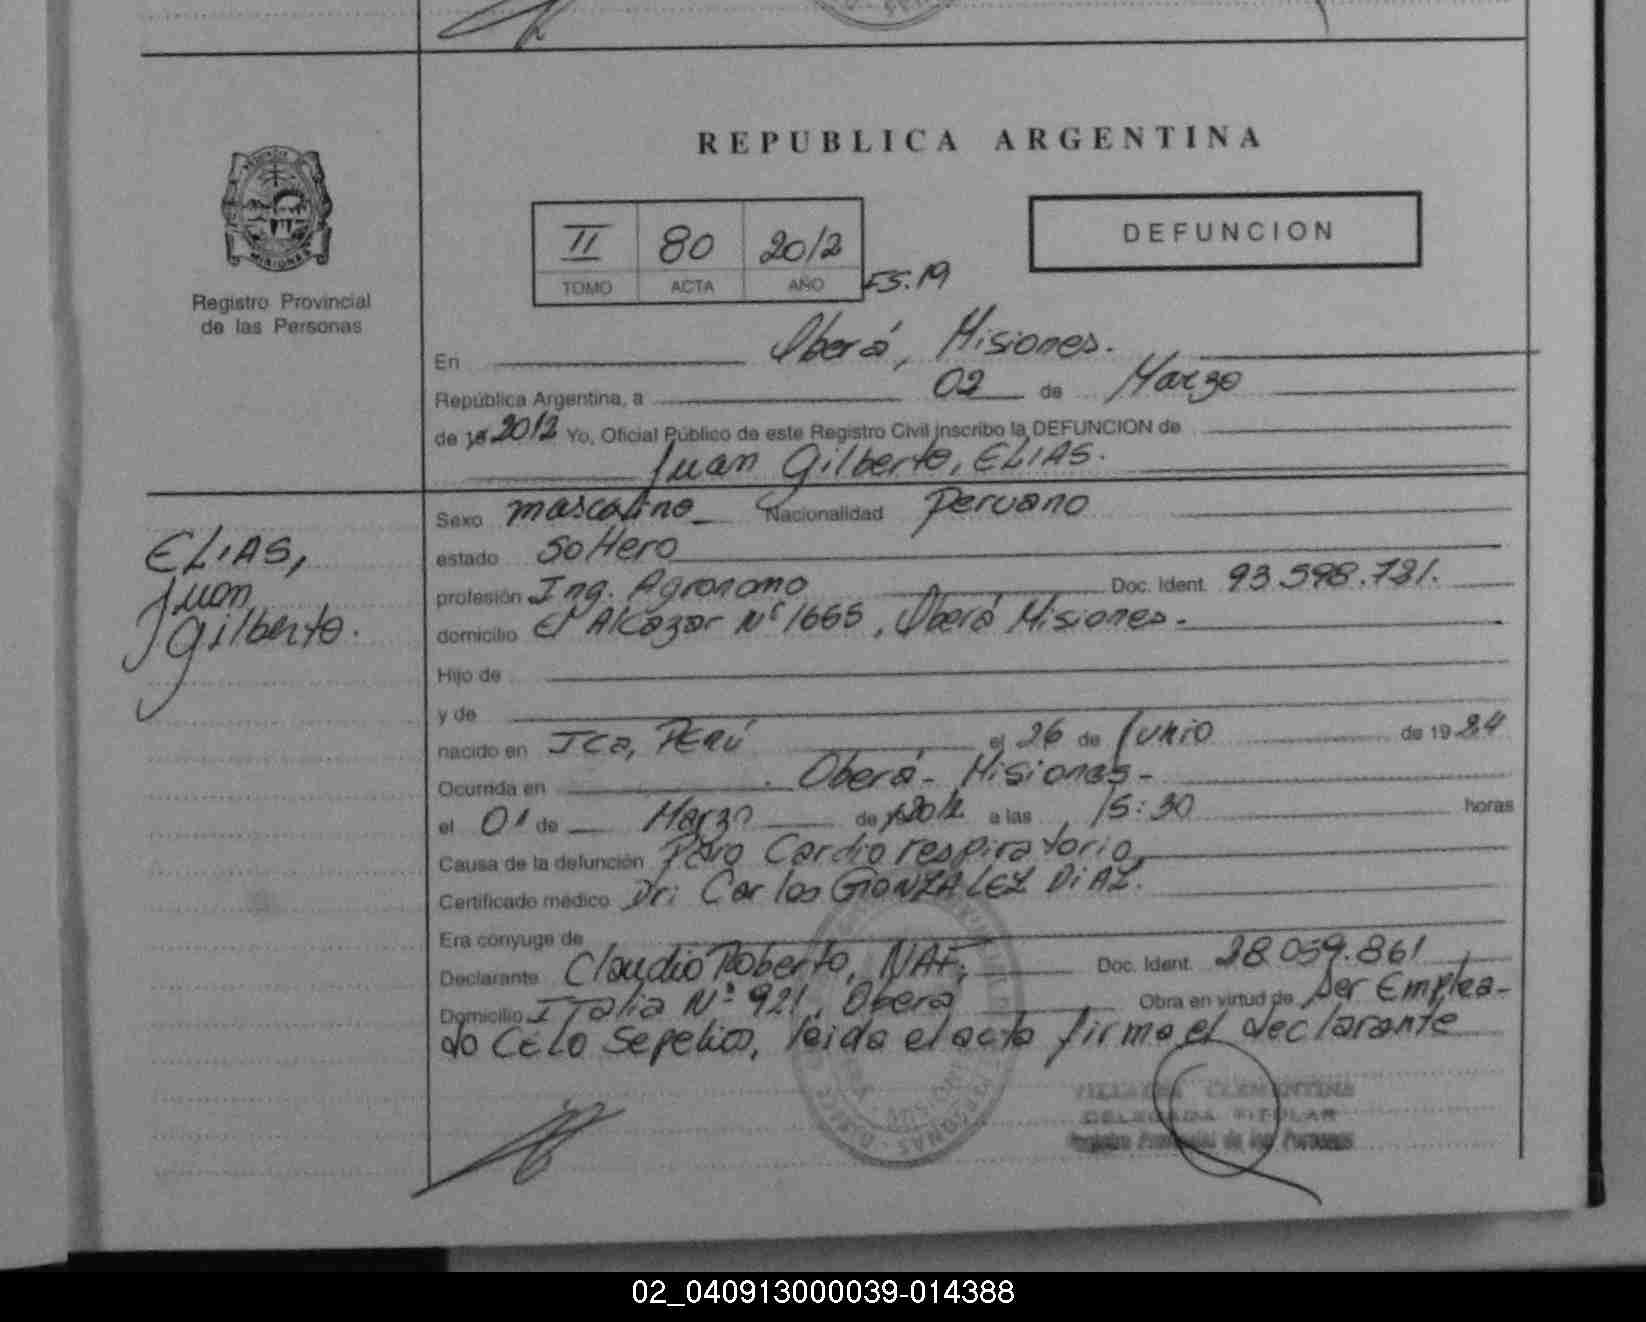 REPUBLICA ARGENTINA
II 80 2012
TOMO ACTA AÑO
DEFUNCION
Fs. 19
Registro Provincial
de las Personas
En Oberá, Misiones.
República Argentina, a 02 de Marzo
de 19 2012 Yo, Oficial Público de este Registro Civil inscribo la DEFUNCION de
Juan Gilberto, ELIAS.
ELIAS,
Juan
Gilberto.
Sexo masculino Nacionalidad Peruano
estado soltero
profesión Ing. Agronomo Doc. Ident. 93.598.721.
domicilio El Alcazar Nº 1665, Oberá Misiones.
Hijo de
y de
nacido en Ica, PERÚ el 26 de Junio de 19 24
Ocurrida en Oberá - Misiones -
el 01 de Marzo de 19 2012 a las 15:30 horas
Causa de la defunción Paro Cardiorespiratorio,
Certificado médico Dr: Carlos GONZALEZ DIAZ.
Era cónyuge de
Declarante Claudio Roberto, NAF, Doc. Ident. 28.059.861
Domicilio Italia Nº 921, Oberá Obra en virtud de Ser Emplea-
do CELO Sepelios, leida el acta firma el declarante
CLEMENTINA
DELEGADA TITULAR
Registro Provincial de las Personas
02_040913000039-014388